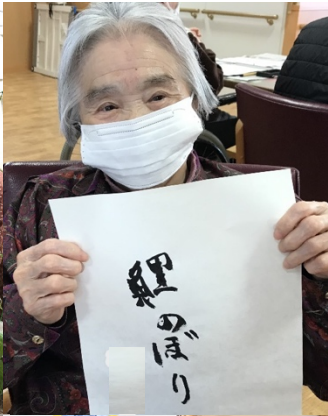 鯉のぼり